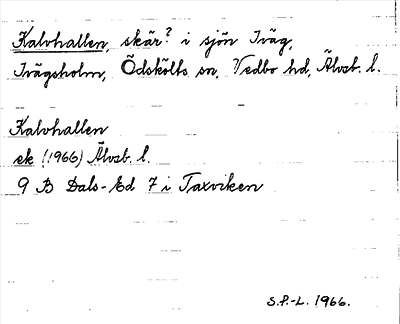 Kalvhallen, skär? i sjön Iväg,
Ivägsholm, Ödskölts sn, Vedbo hd, Älvsb. l.
Kalvhallen
ek (1966) Älvsb. l.
9 B Dals-Ed 7 i Taxviken
S.P.-L. 1966.